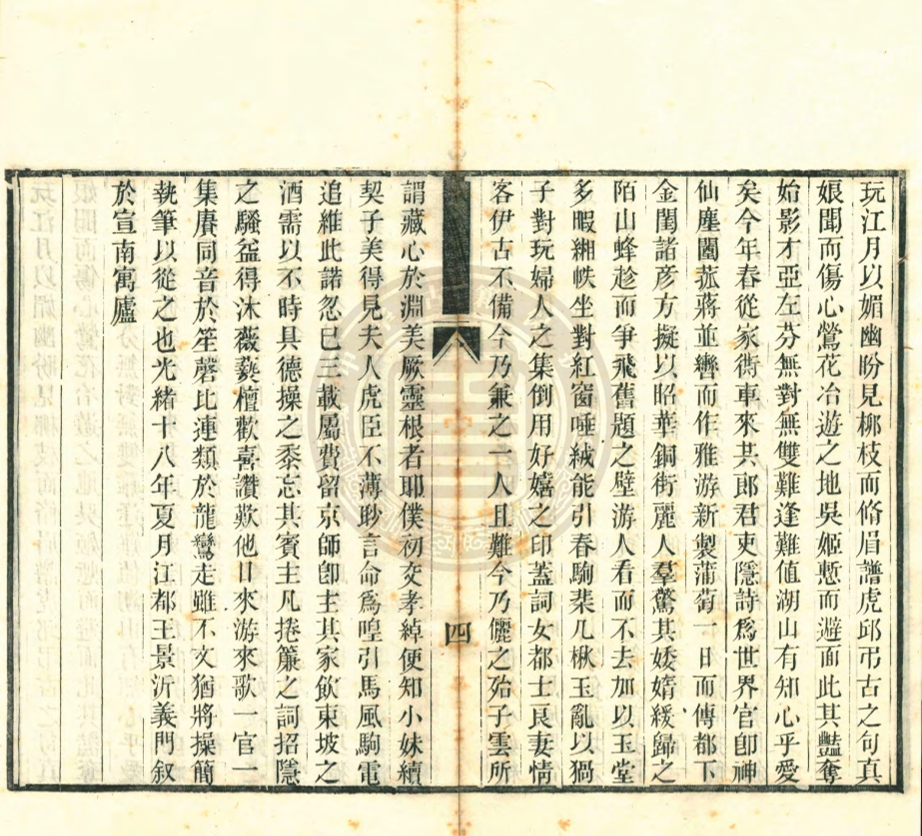 玩江月以媚幽盼見桺枝而脩眉譜虎邱弔古之句真
娘聞而傷心鶯花冶遊之地吳姬慙而避面此其豔奪
始影才亞左芬無對無雙難逢難值湖山有知心乎愛
矣今年春從家衖車來共郎君吏隱詩爲世界官卽神
仙塵闔菰蔣並轡而作雅游新製蒲萄一日而傳都下
金閨諸彦方擬以昭華銅街麗人羣驚其婑媠緩歸之
陌山蜂趁而爭飛舊題之壁游人看而不去加以玉堂
多暇緗帙坐對紅窗唾絨能引春駒棐几楸玉亂以猧
子對玩婦人之集倒用好嬉之印蓋詞女都士良妻情
客伊古不備今乃兼之一人且難今乃儷之殆子雲所
四
謂藏心於淵美厥靈根者耶僕初交孝綽便知小妹續
契子美得見夫人虎臣不薄聊言命爲喤引馬風駒電
追維此諾忽已三載屬費留京師卽主其家飲東坡之
酒需以不時具德操之黍忘其賓主凡捲簾之詞招隱
之騷益得沐薇爇檀歡喜讚歎他日來游來歌一官一
集賡同音於笙磬比連類於龍鸞走雖不文猶將操簡
執筆以從之也光緒十八年夏月江都王景沂義門叙
於宣南寓廬